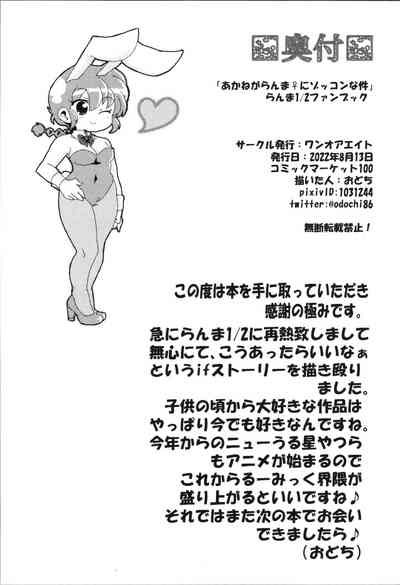 奥付
「あかねがらんま♀にゾッコンな件」
らんま1/2ファンブック
サークル発行：ワンオアエイト
発行日：2022年8月13日
コミックマーケット100
描いた人：おどち
pixivID:1031244
twitter:@odochi86
無断転載禁止！
この度は本を手に取っていただき
感謝の極みです。
急にらんま1/2に再熱致しまして
無心にて、こうあったらいいなぁ
というifストーリーを描き殴り
ました。
子供の頃から大好きな作品は
やっぱり今でも好きなんですね。
今年からのニューうる星やつら
もアニメが始まるので
これからるーみっく界隈が
盛り上がるといいですね♪
それではまた次の本でお会い
できましたら♪
（おどち）